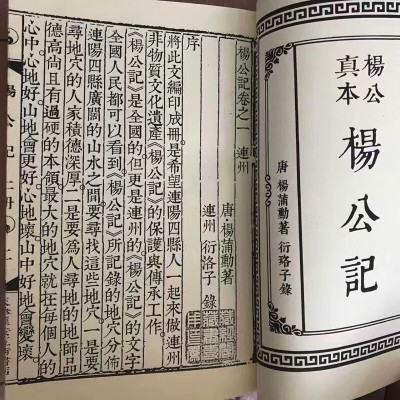 楊公
真本
楊公記
唐 楊蒲勳著 衍洺子錄
楊公記卷之一 連州
唐·楊蒲勳著
連州 衍洺子 錄
序
將此文編印成冊是希望連陽四縣人一起來做連州
非物質文化遺產《楊公記》的保護與傳承工作。
《楊公記》是全國的但更是連州的《楊公記》的文字
全國人民都可以看到《楊公記》所記錄的地穴分佈
連陽四縣廣闊的山水之間要尋找這些地穴一是要
尋地穴的人家積德深厚二是要為人尋地的地師品
德高尚且有過硬的本領。最大的地穴就在每個人的
心中心地好山地會更好心地壞山中好地會變壞。
楊公記 上冊